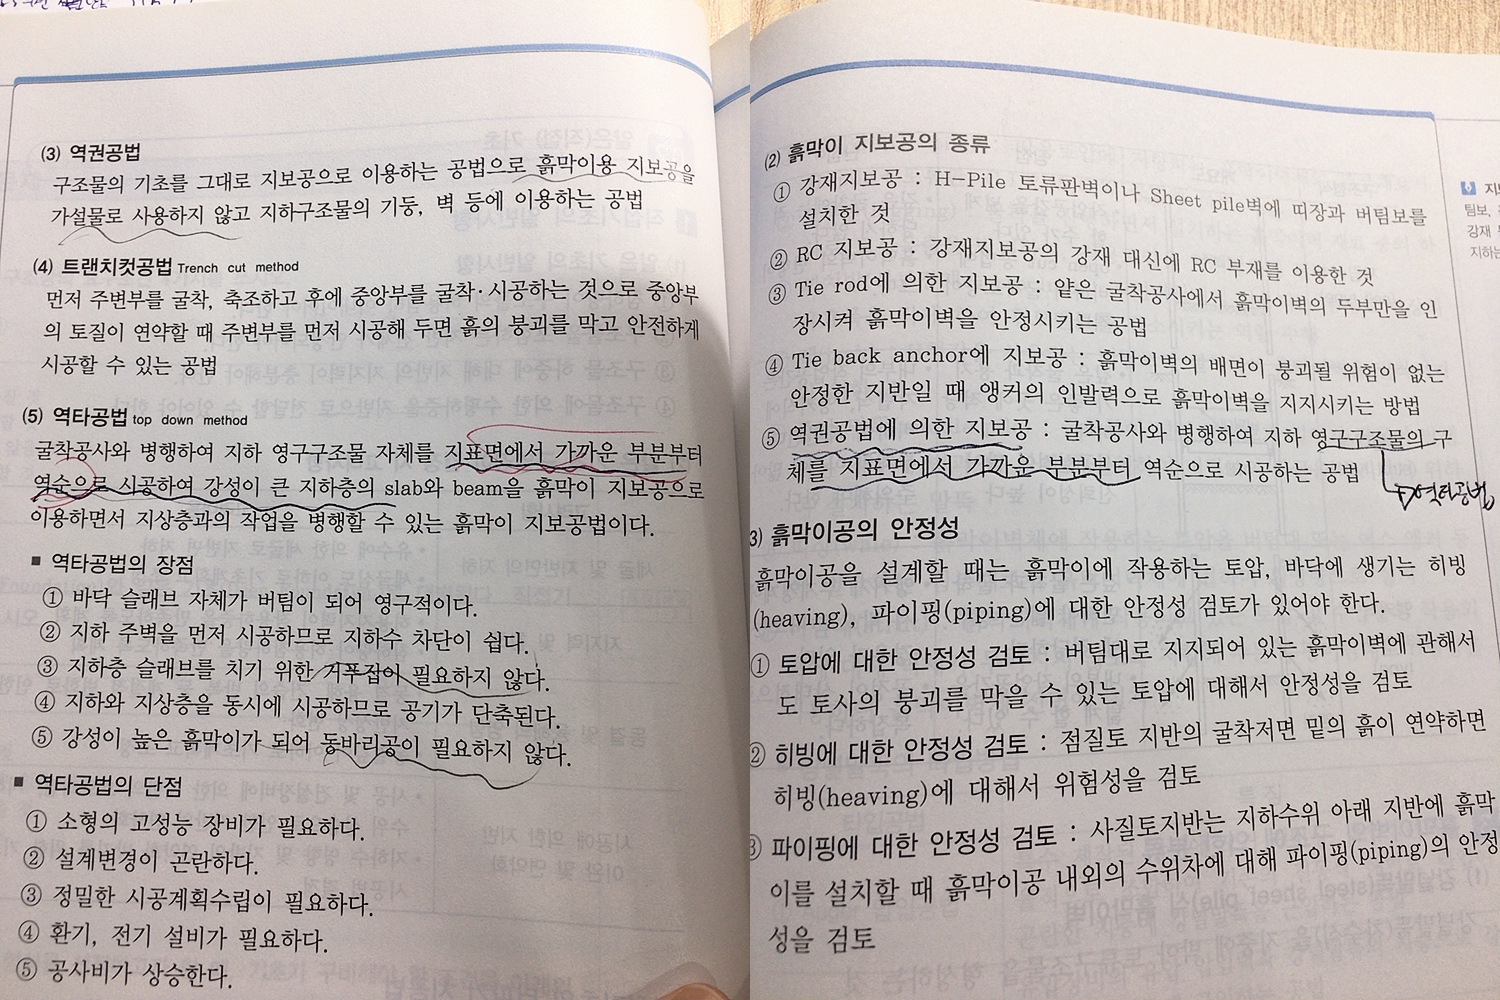 (3) 역권공법
구조물의 기초를 그대로 지보공으로 이용하는 공법으로 흙막이용 지보공을
가설물로 사용하지 않고 지하구조물의 기둥, 벽 등에 이용하는 공법
(4) 트랜치컷공법 Trench cut method
먼저 주변부를 굴착, 축조하고 후에 중앙부를 굴착·시공하는 것으로 중앙부
의 토질이 연약할 때 주변부를 먼저 시공해 두면 흙의 붕괴를 막고 안전하게
시공할 수 있는 공법
(5) 역타공법 top down method
굴착공사와 병행하여 지하 영구구조물 자체를 지표면에서 가까운 부분부터
역순으로 시공하여 강성이 큰 지하층의 slab와 beam을 흙막이 지보공으로
이용하면서 지상층과의 작업을 병행할 수 있는 흙막이 지보공법이다.
■ 역타공법의 장점
① 바닥 슬래브 자체가 버팀이 되어 영구적이다.
② 지하 주벽을 먼저 시공하므로 지하수 차단이 쉽다.
③ 지하층 슬래브를 치기 위한 거푸집이 필요하지 않다.
④ 지하와 지상층을 동시에 시공하므로 공기가 단축된다.
⑤ 강성이 높은 흙막이가 되어 동바리공이 필요하지 않다.
■ 역타공법의 단점
① 소형의 고성능 장비가 필요하다.
② 설계변경이 곤란하다.
③ 정밀한 시공계획수립이 필요하다.
④ 환기, 전기 설비가 필요하다.
⑤ 공사비가 상승한다.
(2) 흙막이 지보공의 종류
① 강재지보공 : H-Pile 토류판벽이나 Sheet pile벽에 띠장과 버팀보를
설치한 것
② RC 지보공 : 강재지보공의 강재 대신에 RC 부재를 이용한 것
③ Tie rod에 의한 지보공 : 얕은 굴착공사에서 흙막이벽의 두부만을 인
장시켜 흙막이벽을 안정시키는 공법
④ Tie back anchor에 지보공 : 흙막이벽의 배면이 붕괴될 위험이 없는
안정한 지반일 때 앵커의 인발력으로 흙막이벽을 지지시키는 방법
⑤ 역권공법에 의한 지보공 : 굴착공사와 병행하여 지하 영구구조물의 구
체를 지표면에서 가까운 부분부터 역순으로 시공하는 공법
역타공법
3) 흙막이공의 안정성
흙막이공을 설계할 때는 흙막이에 작용하는 토압, 바닥에 생기는 히빙
(heaving), 파이핑(piping)에 대한 안정성 검토가 있어야 한다.
① 토압에 대한 안정성 검토 : 버팀대로 지지되어 있는 흙막이벽에 관해서
도 토사의 붕괴를 막을 수 있는 토압에 대해서 안정성을 검토
② 히빙에 대한 안정성 검토 : 점질토 지반의 굴착저면 밑의 흙이 연약하면
히빙(heaving)에 대해서 위험성을 검토
③ 파이핑에 대한 안정성 검토 : 사질토지반는 지하수위 아래 지반에 흙막
이를 설치할 때 흙막이공 내외의 수위차에 대해 파이핑(piping)의 안정
성을 검토
팀보,
강재
지하는